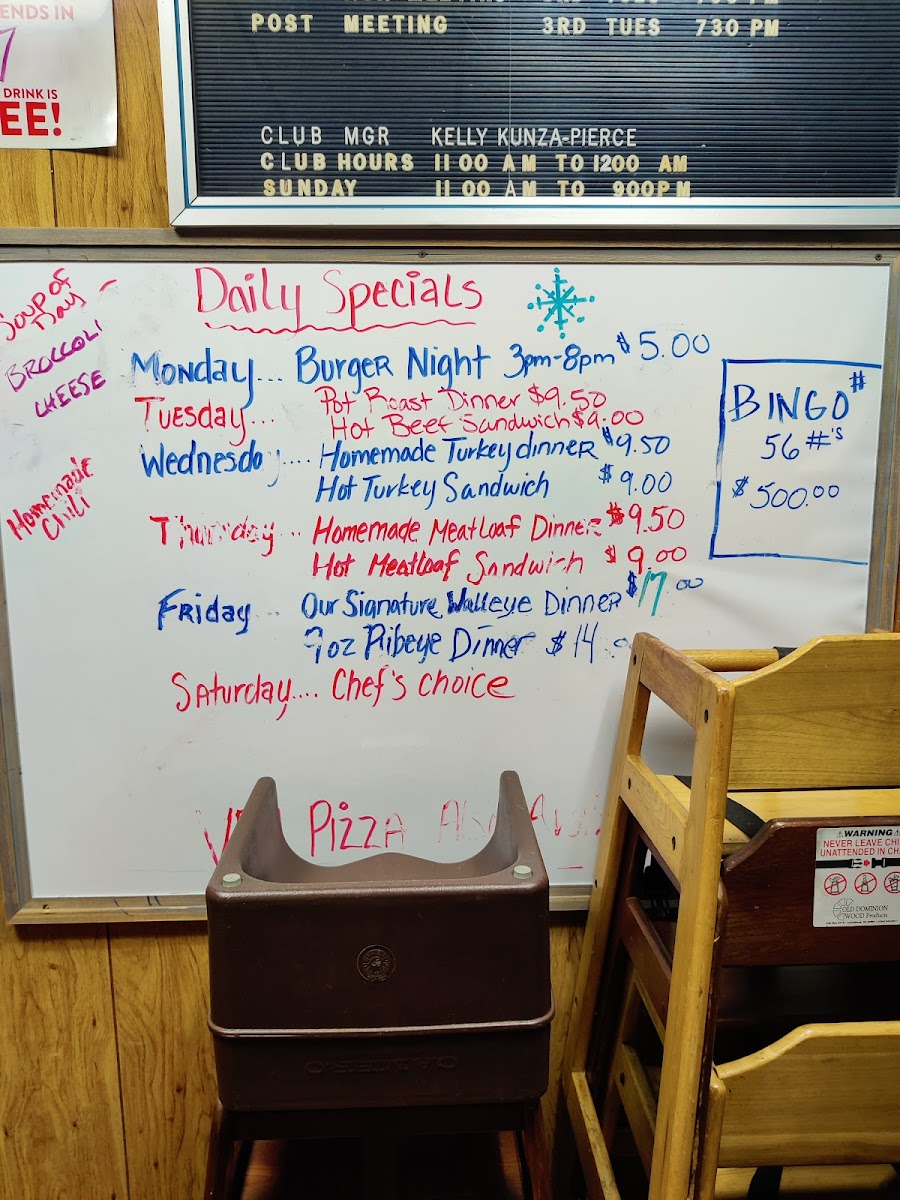 ENDS IN
7
DRINK IS
EE!
POST MEETING 3RD TUES 7 30 PM
CLUB MGR KELLY KUNZA-PIERCE
CLUB HOURS 11 00 AM TO 12 00 AM
SUNDAY 11 00 AM TO 9 00 PM
Soup of Day
BROCCOLI
CHEESE
Homemade
Chili
Daily Specials
Monday... Burger Night 3pm-8pm $5.00
Tuesday.... Pot Roast Dinner $9.50
Hot Beef Sandwich $9.00
Wednesday.... Homemade Turkey dinner $9.50
Hot Turkey Sandwich $9.00
Thursday... Homemade Meatloaf Dinner $9.50
Hot Meatloaf Sandwich $9.00
Friday... Our Signature Walleye Dinner $17.00
9oz Ribeye Dinner $14
Saturday.... Chef's Choice
PIZZA
BINGO #
56 #'s
$500.00
WARNING
NEVER LEAVE CHI
UNATTENDED IN CHA
OLD DOMINION
WOOD Products